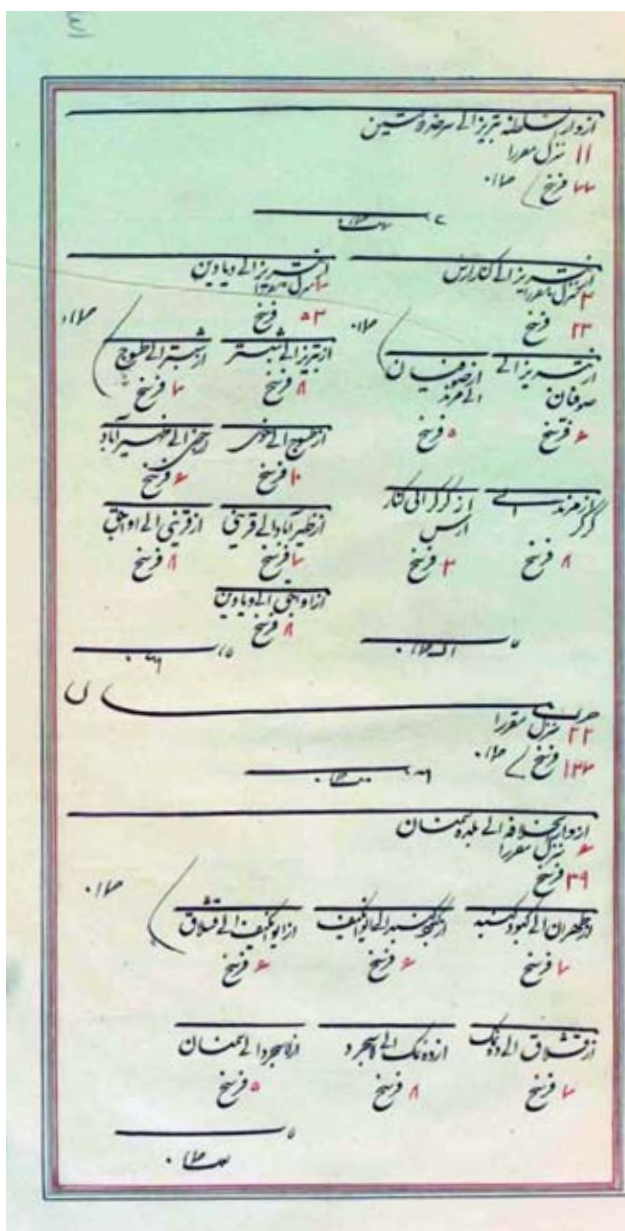 از دارالسلطنه تبریز الی سرحد دولتین
۱۱ منزل مقررا
فرسخ
از تبریز الی کنار ارس
۴ منزل مقررا
۲۳ فرسخ
از تبریز الی صوفیان
۶ فرسخ
از صوفیان الی مرند
۵ فرسخ
از مرند الی گرگر
۸ فرسخ
از گرگر الی کنار ارس
۴ فرسخ
از تبریز الی دیادین
۷ منزل مقررا
۵۳ فرسخ
از تبریز الی شبستر
۸ فرسخ
از شبستر الی طسوج
۷ فرسخ
از طسوج الی خوی
۱۰ فرسخ
از خوی الی ظهیرآباد
۶ فرسخ
از ظهیرآباد الی قرینی
۷ فرسخ
از قرینی الی اواجق
۸ فرسخ
از اواجق الی دیادین
۸ فرسخ
خراسان
۲۲ منزل مقررا
فرسخ
از دارالخلافه الی بلده سمنان
۶ منزل مقررا
۳۹ فرسخ
از طهران الی کبود گنبد
۷ فرسخ
از کبود گنبد الی ایوانکیف
۶ فرسخ
از ایوانکیف الی قشلاق
۶ فرسخ
از قشلاق الی ده نمک
۷ فرسخ
از ده نمک الی لاسجرد
۸ فرسخ
از لاسجرد الی سمنان
۵ فرسخ